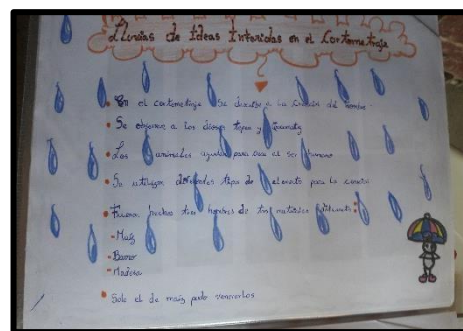 Lluvias de Ideas Inferidas en el Cortometraje
• En el cortometraje Se la Creación del hombre.
• Se observan a los dioses tepeu y
• Los animales ayudan para crear el ser humano
• Se utilizan diferentes tipos de elementos para la
• Fueron hechos tres hombres de tres materiales diferentes:
- Maíz
- Barro
- Madera
• Solo el de maíz pudo vencerlos